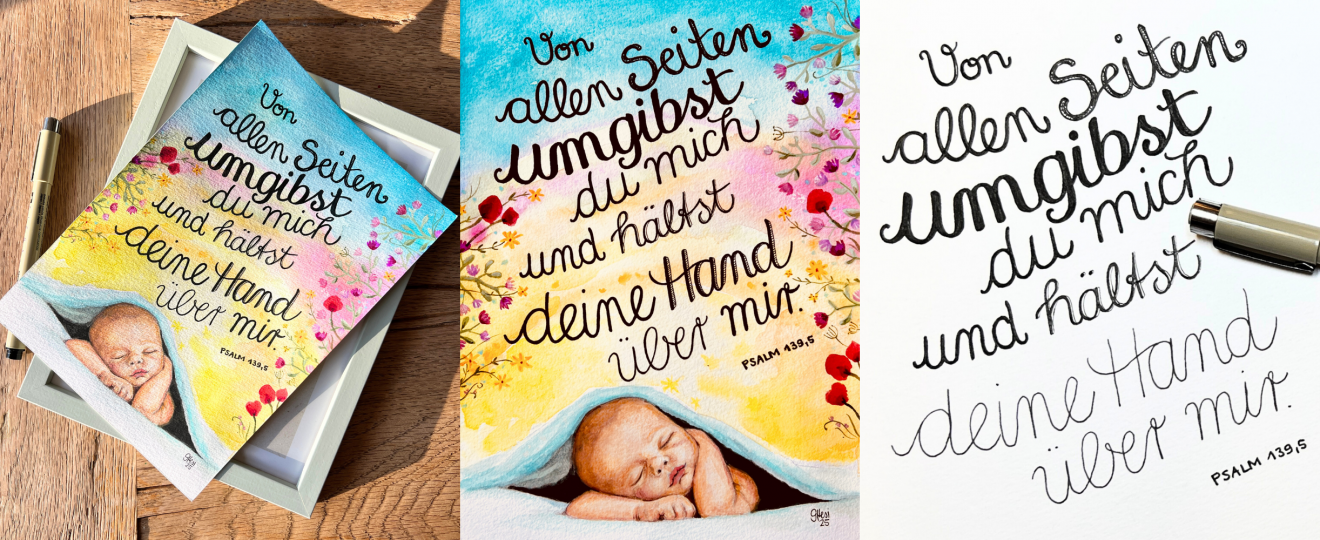 Von
allen Seiten
umgibst
du mich
und hältst
deine Hand
über mir.
PSALM 139,5
Von
allen Seiten
umgibst
du mich
und hältst
deine Hand
über mir.
PSALM 139,5
25
Von
allen Seiten
umgibst
du mich
und hältst
deine Hand
über mir.
PSALM 139,5